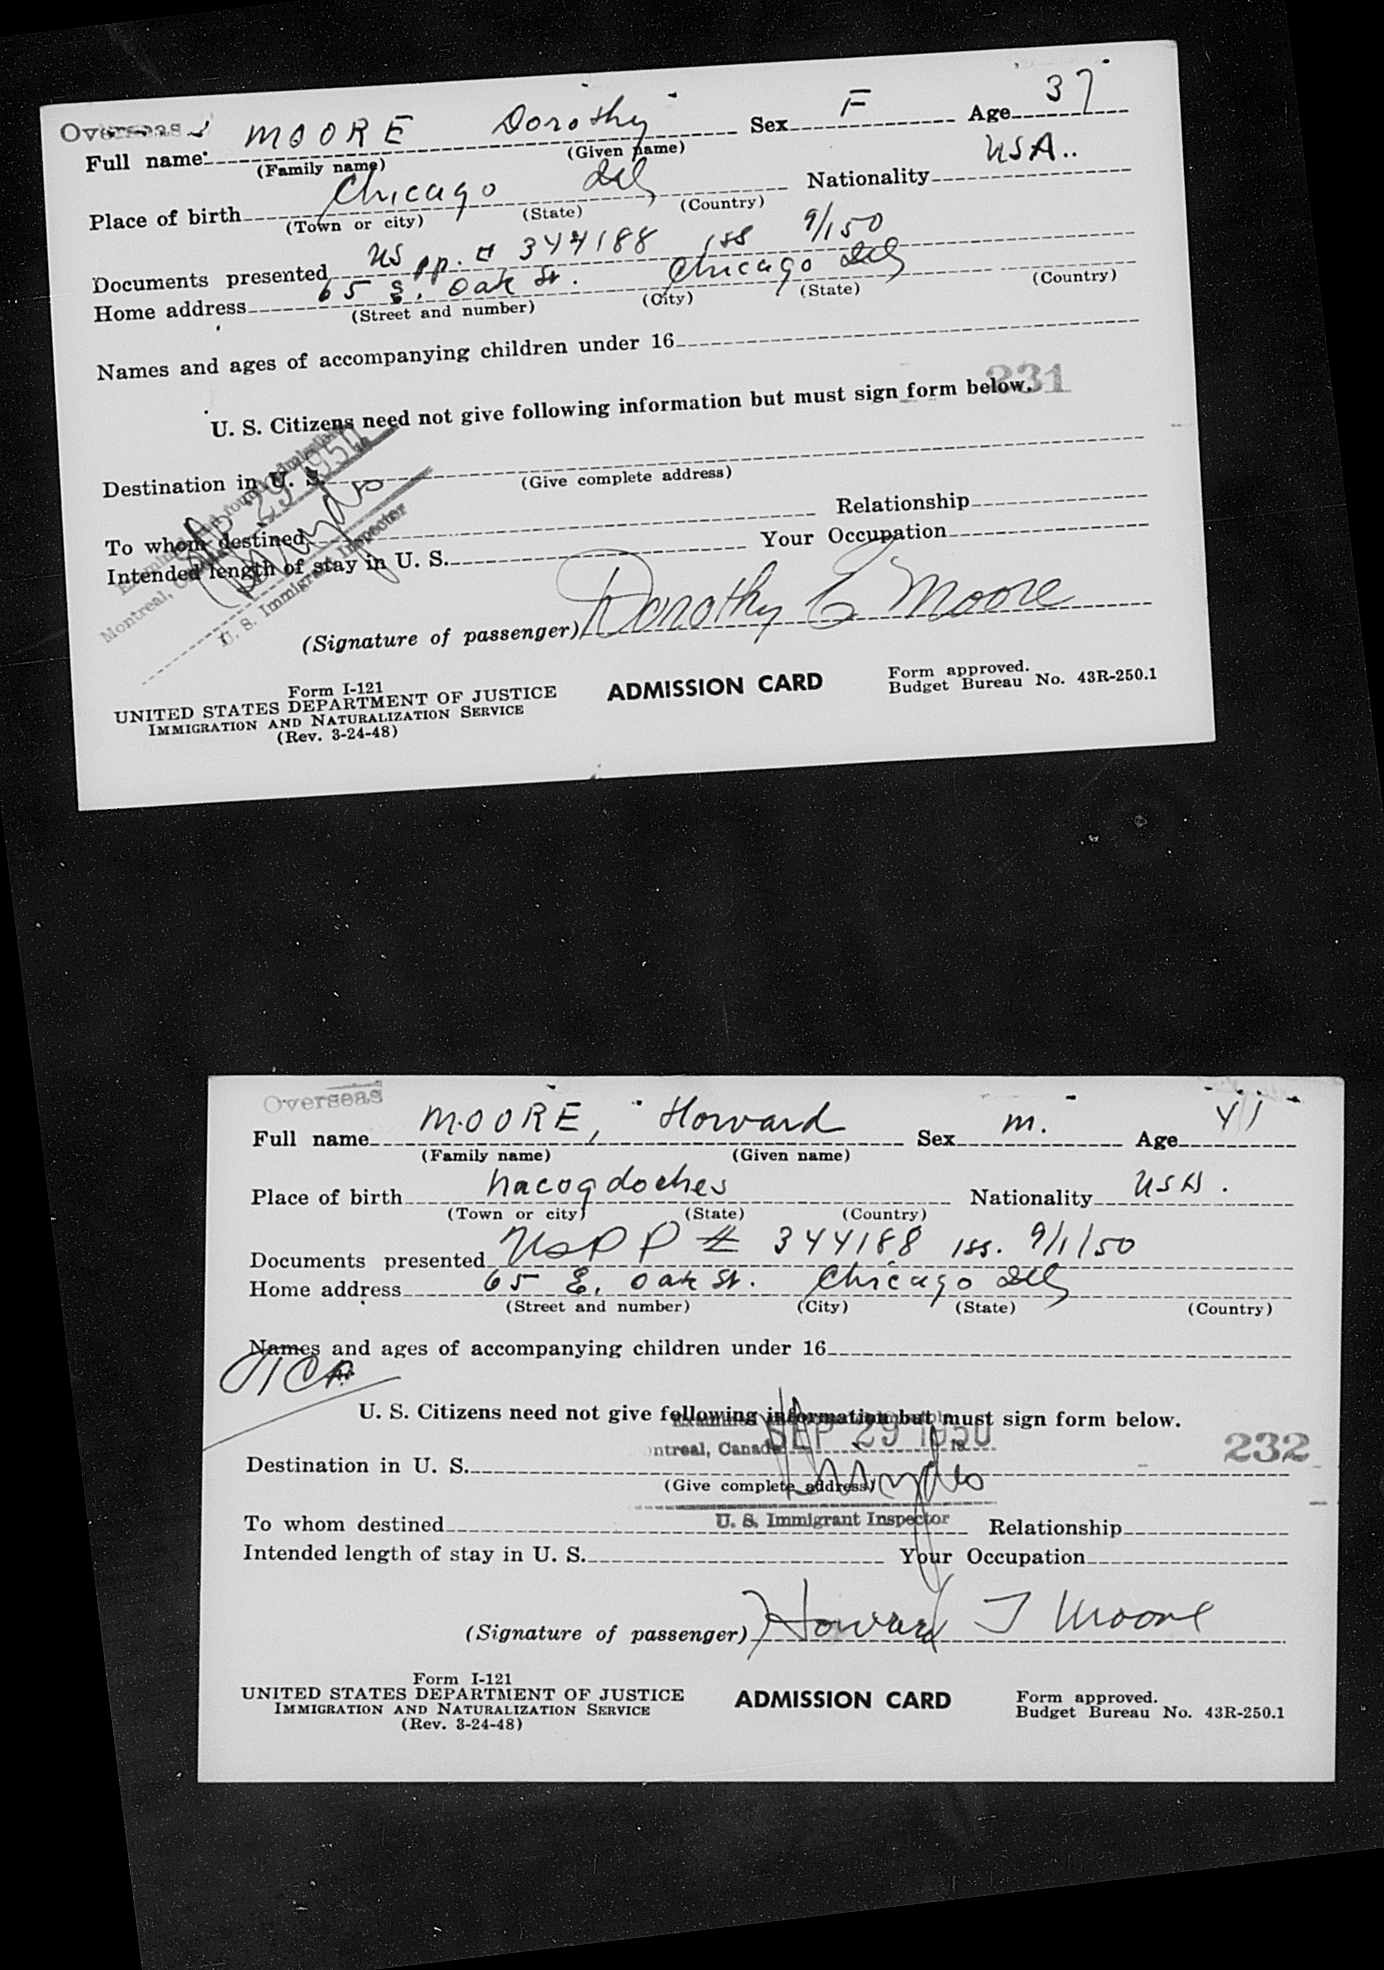 Overseas
Full name MOORE Dorothy Sex F Age 37
(Family name) (Given name)
Place of birth Chicago Ill Nationality USA..
(Town or city) (State) (Country)
Documents presented US pp. # 344188 iss 9/1/50
Home address 65 E. Oak St. Chicago Ill
(Street and number) (City) (State) (Country)
Names and ages of accompanying children under 16
231
U. S. Citizens need not give following information but must sign form below.
Destination in U. S.
(Give complete address)
To whom destined Relationship
Intended length of stay in U. S. Your Occupation
Montreal,
29 1950
U. S. Immigrant Inspector
(Signature of passenger) Dorothy C Moore
Form I-121
UNITED STATES DEPARTMENT OF JUSTICE
IMMIGRATION AND NATURALIZATION SERVICE
(Rev. 3-24-48)
ADMISSION CARD
Form approved.
Budget Bureau No. 43R-250.1
Overseas
Full name MOORE, Howard Sex m. Age 41
(Family name) (Given name)
Place of birth Nacogdoches Nationality USA.
(Town or city) (State) (Country)
Documents presented US P P # 344188 iss. 9/1/50
Home address 65 E. Oak St. Chicago Ill
(Street and number) (City) (State) (Country)
Names and ages of accompanying children under 16
U. S. Citizens need not give following information but must sign form below.
ntreal, Canada SEP 29 1950
232
Destination in U. S.
(Give complete address)
U. S. Immigrant Inspector
To whom destined Relationship
Intended length of stay in U. S. Your Occupation
(Signature of passenger) Howard T Moore
Form I-121
UNITED STATES DEPARTMENT OF JUSTICE
IMMIGRATION AND NATURALIZATION SERVICE
(Rev. 3-24-48)
ADMISSION CARD
Form approved.
Budget Bureau No. 43R-250.1